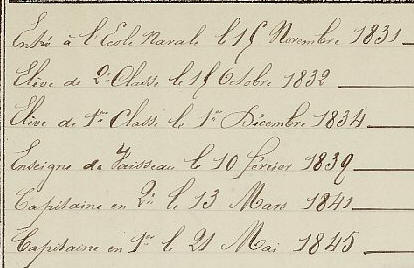 Entré à l'Ecole Navale le 15 Novembre 1831
Elève de 2e Classe le 15 Octobre 1832
Elève de 1re Classe le 1er Décembre 1834
Enseigne de Vaisseau le 10 février 1839
Capitaine en 2d le 13 Mars 1841
Capitaine en 1er le 21 Mai 1845